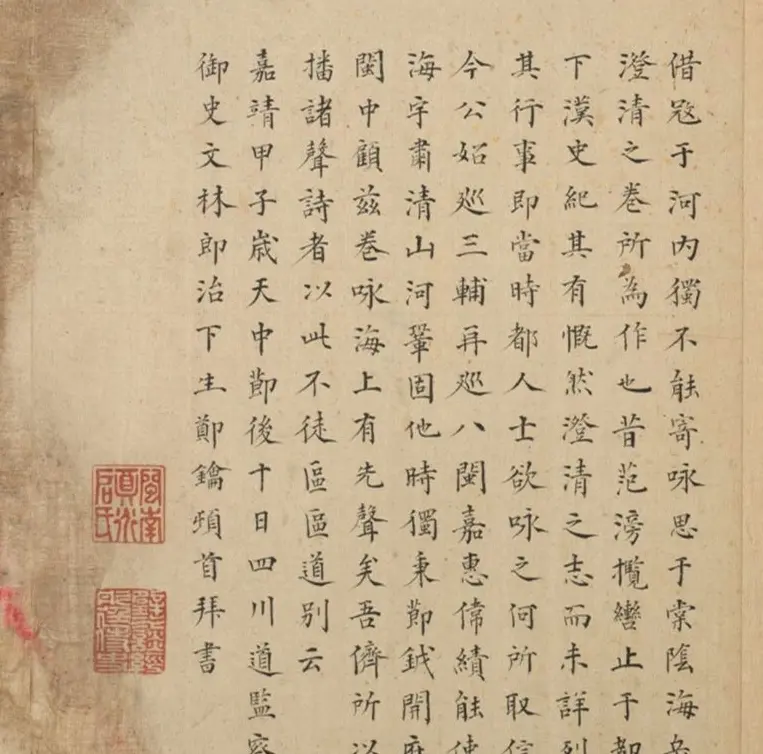 借寇于河内獨不能寄咏思于棠陰海
澄清之卷所為作也昔范滂攬轡止于都
下漢史紀其有慨然澄清之志而未詳列
其行事即當時都人士欲咏之何所取信
今公始巡三輔再巡八閩嘉惠偉績能使
海宇肅清山河鞏固他時獨秉節鉞開府
閩中顧茲卷咏海上有先聲矣吾儕所以
播諸聲詩者以此不徒區區道別云
嘉靖甲子歲天中節後十日四川道監察
御史文林郎治下生鄭鑰頓首拜書
閩南